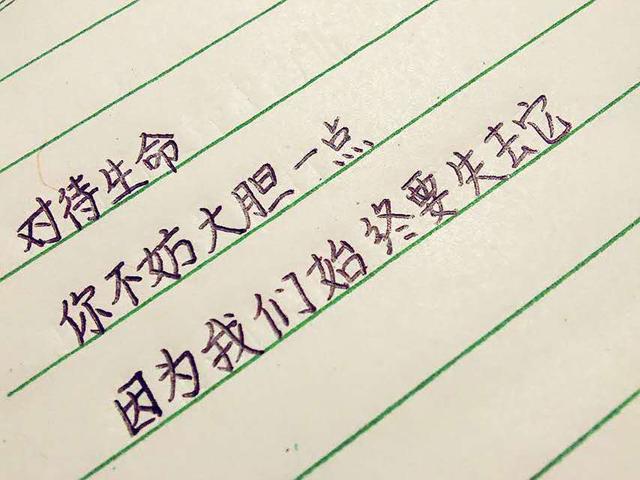 对待生命
你不妨大胆一点
因为我们始终要失去它